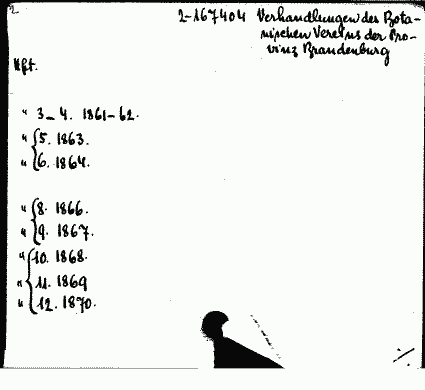 2
2-167404 Verhandlungen des Bota-
nischen Vereins der Pro-
vinz Brandenburg
Hft.
" 3-4. 1861-62.
" 5. 1863.
" 6. 1864.
" 8. 1866.
" 9. 1867.
" 10. 1868.
" 11. 1869
" 12. 1870.